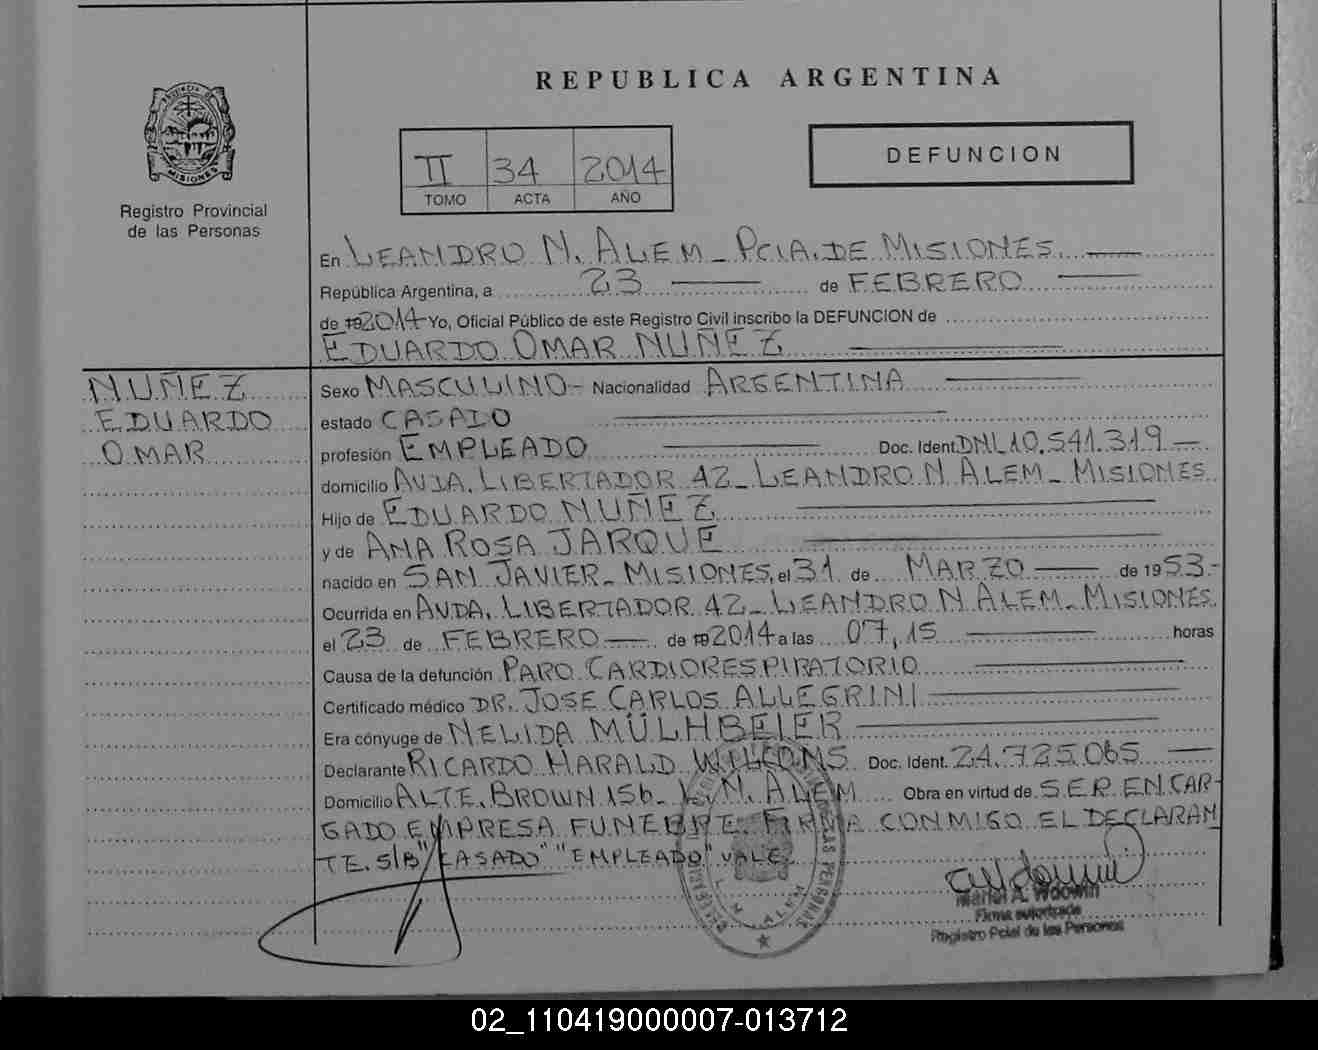 REPUBLICA ARGENTINA
DEFUNCION
II 34 2014
TOMO ACTA AÑO
MISIONES
Registro Provincial
de las Personas
En LEANDRO N. ALEM - PCIA. DE MISIONES
República Argentina, a 23 de FEBRERO
de 19 2014 Yo, Oficial Público de este Registro Civil inscribo la DEFUNCION de
EDUARDO OMAR NUÑEZ
NUÑEZ
EDUARDO
OMAR
Sexo MASCULINO - Nacionalidad ARGENTINA
estado CASADO
profesión EMPLEADO Doc. Ident. DNI. 10.541.319
domicilio AVDA. LIBERTADOR 42 - LEANDRO N. ALEM - MISIONES
Hijo de EDUARDO NUÑEZ
y de ANA ROSA JARQUE
nacido en SAN JAVIER - MISIONES, el 31 de MARZO de 1953.-
Ocurrida en AVDA. LIBERTADOR 42 - LEANDRO N. ALEM - MISIONES
el 23 de FEBRERO de 19 2014 a las 07,15 horas
Causa de la defunción PARO CARDIORESPIRATORIO
Certificado médico DR. JOSE CARLOS ALLEGRINI
Era cónyuge de NELIDA MÜLHBEIER
Declarante RICARDO HARALD Doc. Ident. 24.725.065
Domicilio ALTE. BROWN 156 - L. N. ALEM Obra en virtud de SER ENCAR-
GADO EMPRESA FUNEBRE. FIRMA CONMIGO EL DECLARAN
TE. S/B "CASADO" "EMPLEADO" VALE.
L. N. ALEM
PERSONAS
Firma autorizada
Registro Pcial de las Personas
02_110419000007-013712